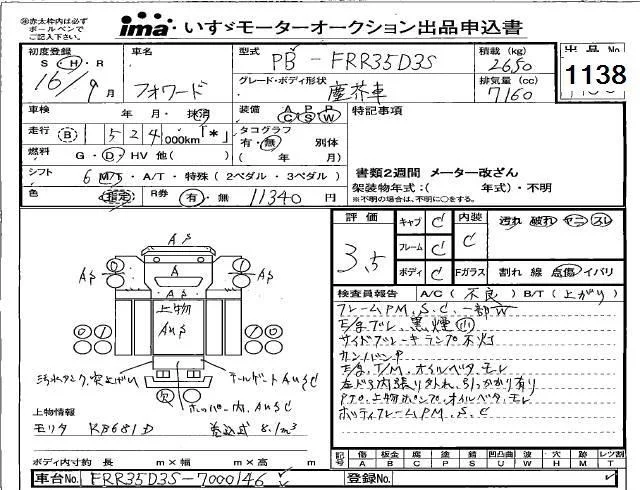 ※赤太枠内は必ず
ボールペンで
ご記入下さい。
ima いすゞモーターオークション出品申込書
初度登録 車名 型式 PB-FRR35D3S 積載 (kg) 2650 出品No
S・H・R 16/9月 フォワード グレード・ボディ形状 塵芥車 排気量 (cc) 7160 1138
車検 年 月・抹消 装備 AC PS PW 特記事項
走行 (B) 5 2 4 000km「*」 タコグラフ 有・無 別体
燃料 G・D・HV 他( ) ( 年 月)
シフト 6 M/T・A/T・特殊(2ペダル・3ペダル) 書類2週間 メーター改ざん
架装物年式:( 年式)・不明
色 (指定) R券 有・無 11340 円 ※不明の場合は、不明に○をする。
評価 3.5 キャブ C 内装 C 汚れ 破れ ヤニ スレ
フレーム C
ボディ C Fガラス 割れ 線 点傷 イバリ
検査員報告 A/C (不良) B/T (上がり)
フレームPM、S、C、一部W
E/gブレ、黒煙(小)
サイドブレーキランプ不灯
カンバンキ
E/g、T/M、オイルベタ、モレ
左ドア内張り外れ、引っかかり有り
PTO、上物ポンプ、オイルベタ、モレ
ボディフレームPM、S、C
AP
A
AP
AP
上物
AUP
汚水タンク、突上げ
テールゲートAUSC
ホッパー内、AUSC
上物情報
モリタ 巻込式 8.1m³
ボディ内寸約 長 m×幅 m×高 m
記号 傷A 板金B 腐C 塗P 油S 錆 凹凸曲U 波W ・穴H 跡M レンズ割T
車台No. FRR35D3S-7000146 登録No.